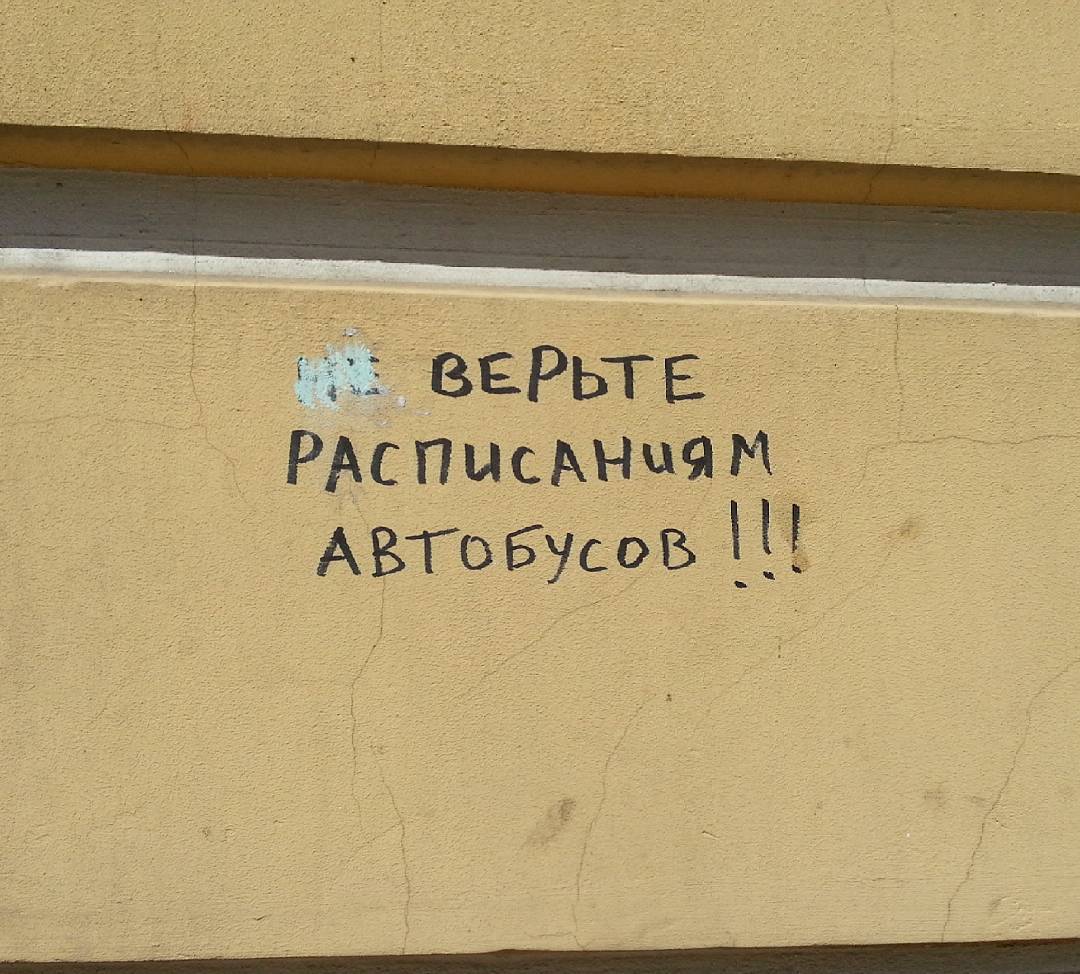 НЕ ВЕРЬТЕ
РАСПИСАНИЯМ
АВТОБУСОВ !!!